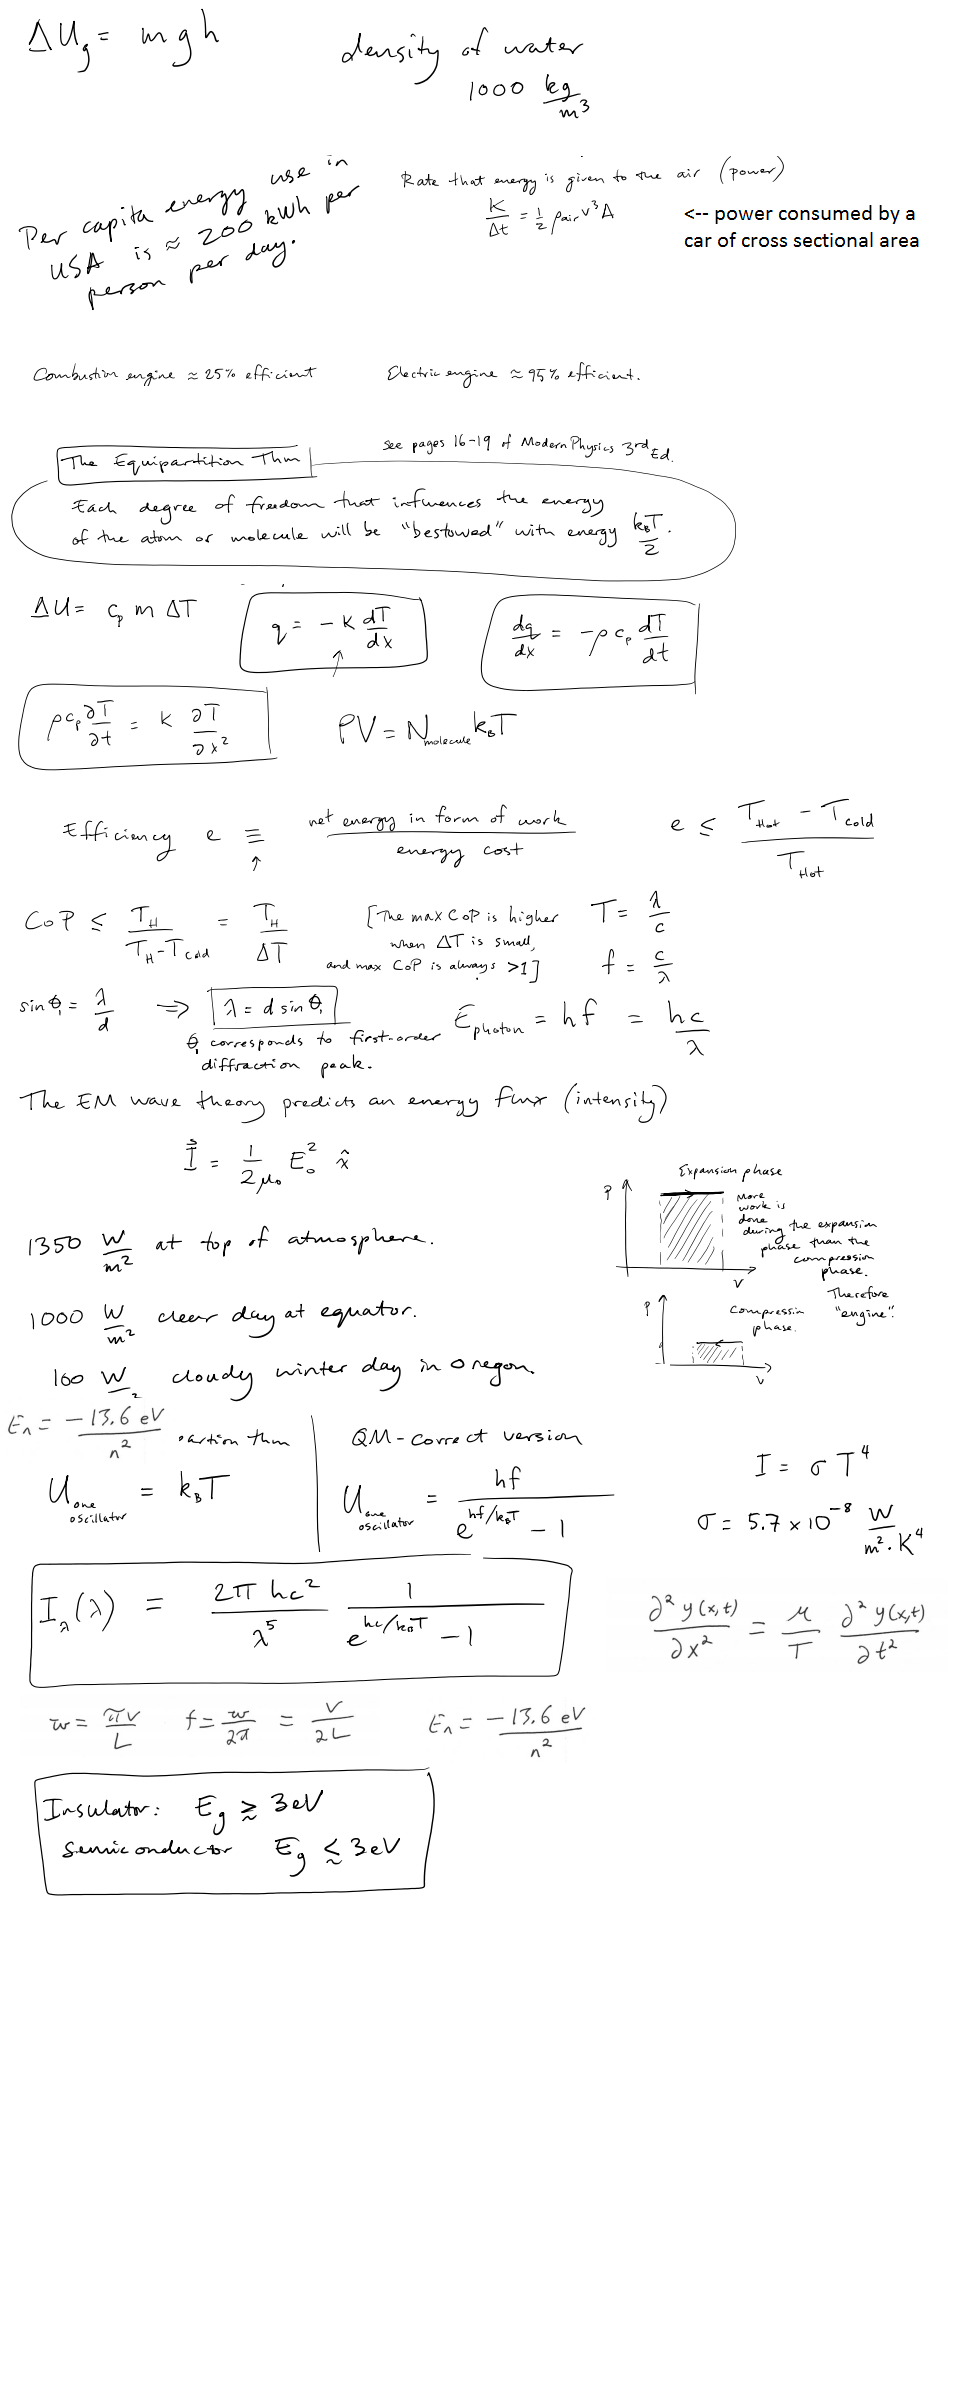 ΔU_g = mgh
density of water
1000 kg/m³
Per capita energy use in
USA is ≈ 200 kWh per
person per day.
Rate that energy is given to the air (power)
K/Δt = 1/2 ρ_air v³ A
<-- power consumed by a
car of cross sectional area
Combustion engine ≈ 25% efficient
Electric engine ≈ 95% efficient.
The Equipartition Thm
see pages 16-19 of Modern Physics 3rd Ed.
Each degree of freedom that influences the energy
of the atom or molecule will be "bestowed" with energy k_BT/2.
ΔU = c_p m ΔT
q = -K dT/dx
↑
dq/dx = -ρ c_p dT/dt
ρc_p ∂T/∂t = K ∂T/∂x²
PV = N_molecule k_BT
Efficiency e ≡ net energy in form of work / energy cost
↑
e ≤ (T_Hot - T_cold)/T_Hot
CoP ≤ T_H/(T_H - T_cold) = T_H/ΔT
[The max CoP is higher
when ΔT is small,
and max CoP is always >1]
T = λ/c
f = c/λ
sin θ₁ = λ/d ⇒ λ = d sin θ₁
θ₁ corresponds to first-order
diffraction peak.
E_photon = hf = hc/λ
The EM wave theory predicts an energy flux (intensity)
I⃗ = 1/(2μ₀) E₀² x̂
Expansion phase
P
More
work is
done
during the expansion
phase than the
compression
phase.
V
Therefore
"engine".
P
Compressin
phase.
V
1350 W/m² at top of atmosphere.
1000 W/m² clear day at equator.
160 W/ ² cloudy winter day in Oregon.
E_n = -13.6 eV/n²
artion thm
U_one oscillator = k_BT
QM-correct version
U_one oscillator = hf/(e^(hf/k_BT) - 1)
I = σT⁴
σ = 5.7 × 10⁻⁸ W/(m²·K⁴)
I_λ(λ) = 2π hc²/λ⁵ 1/(e^(hc/k_BT) - 1)
∂²y(x,t)/∂x² = μ/T ∂²y(x,t)/∂t²
w = πv/L
f = w/2π = v/2L
E_n = -13.6 eV/n²
Insulator: E_g ≳ 3eV
Semiconductor E_g ≲ 3eV